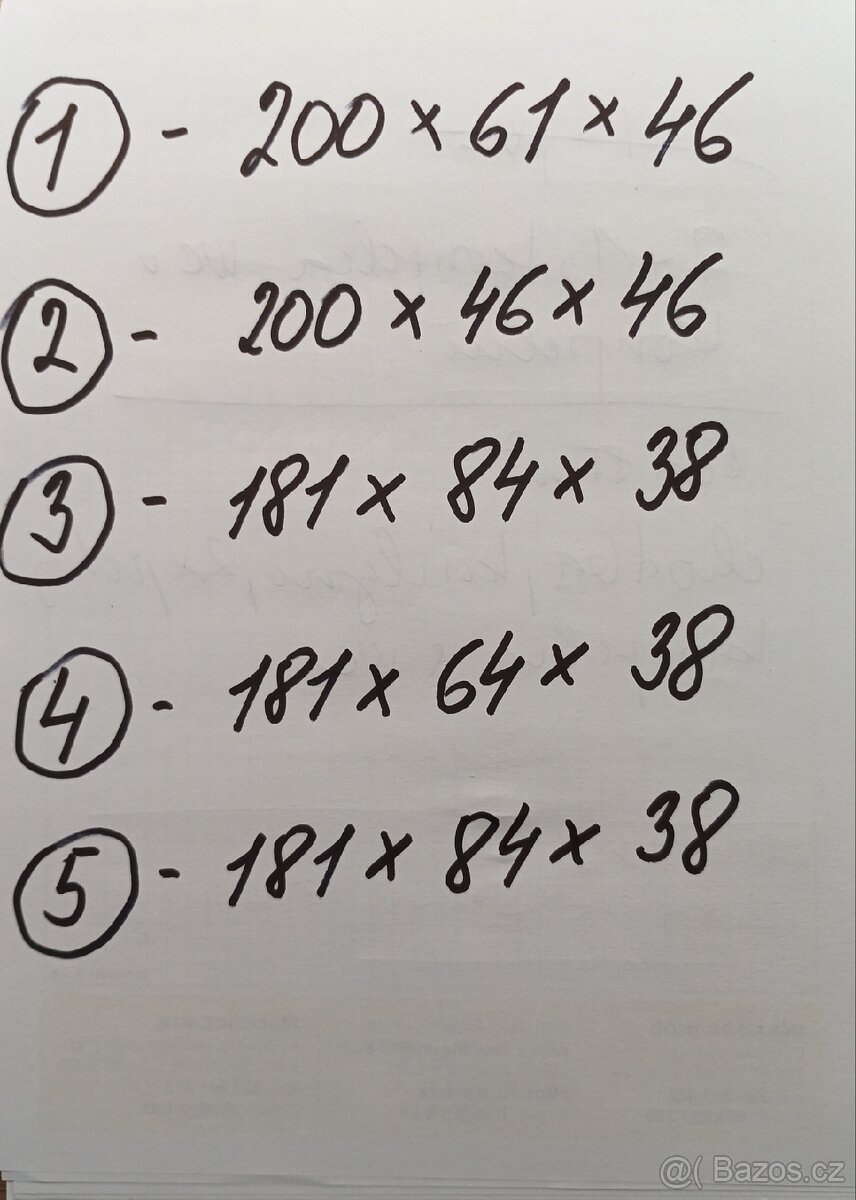 1 - 200 x 61 x 46
2 - 200 x 46 x 46
3 - 181 x 84 x 38
4 - 181 x 64 x 38
5 - 181 x 84 x 38
@( Bazos.cz